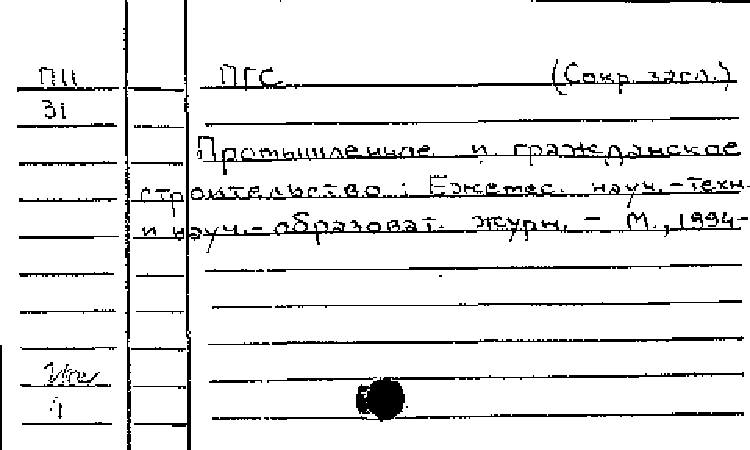 ПІІ ПГС (Сокр. загл.)
31
Промышленное и гражданское
строительство : Ежемес. науч.-техн.
и науч.-образоват. журн. - М., 1994-